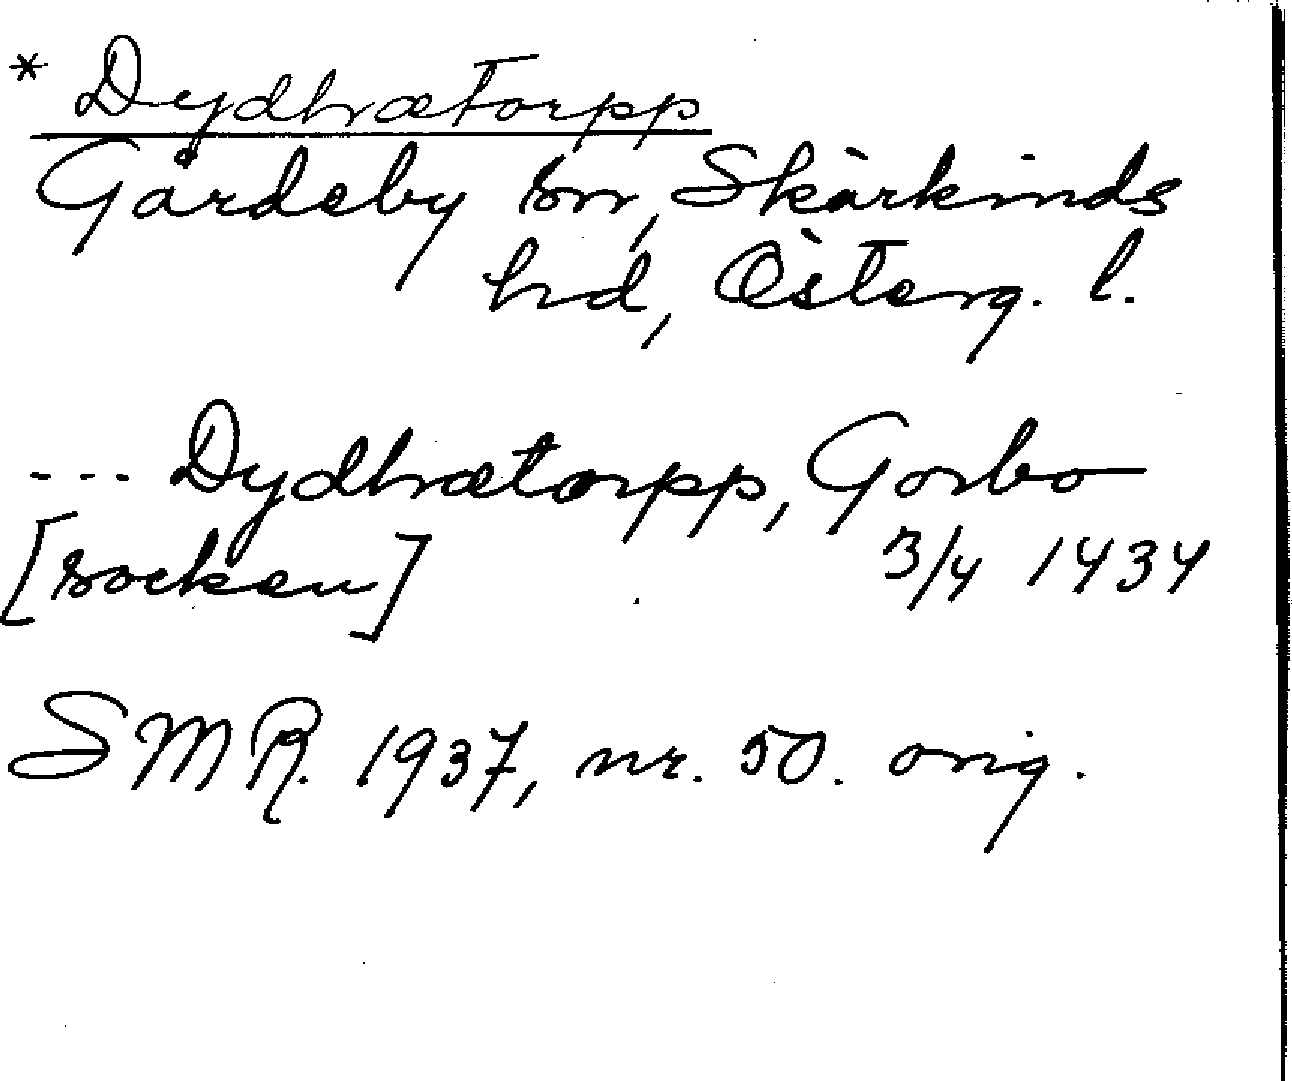 * Dydhrætorpp
Gårdeby sn, Skärkinds
hd, Österg. l.
--- Dydhrætorpp, Gorbo
[socken] 3/4 1434
SMR. 1937, nr. 50. orig.